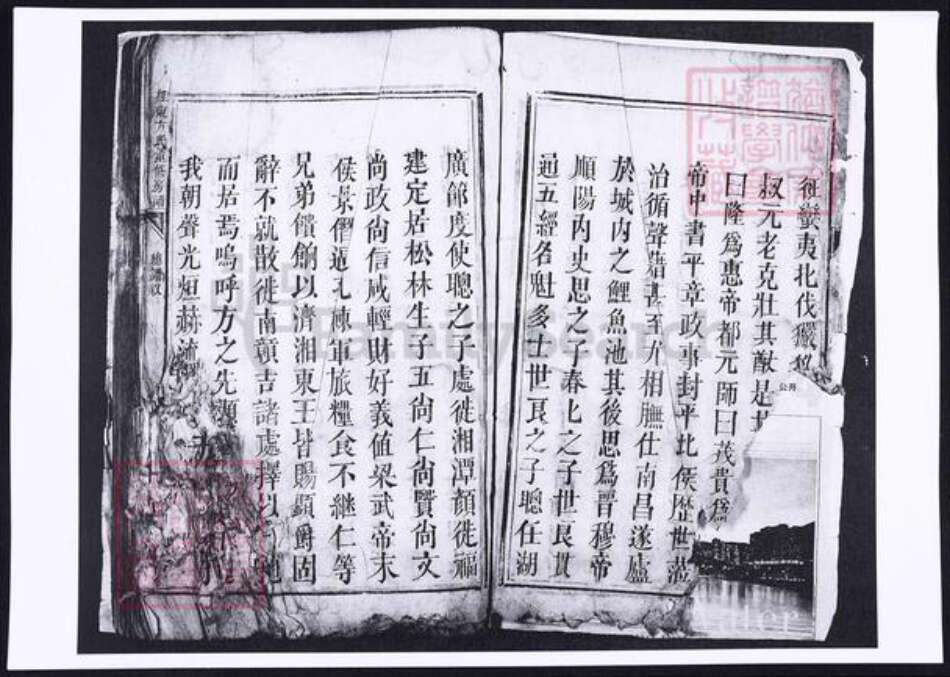 征蠻夷北伐玁狁
叔元老克壯其猷是
曰隆為惠帝都元師曰茂貴為
帝中書平章政事封平北侯歷世蒞
治循聲藉甚至允相膴仕南昌遂廬
於城內之鯉魚池其後思為晉穆帝
順陽內史思之子春上之子世良貫
通五經名魁多士世良之子聰任湖
廣節度使聰之子處徙湘潭顏徙福
建定居松林生子五尚仁尚賢尚文
尚政尚信咸輕財好義值梁武帝末
侯景僭逼元棟軍旅糧食不継仁等
兄弟饋餉以濟湘東王皆賜顯爵固
辭不就散徙南贛吉諸處擇以
而居焉嗚呼方之先
我朝聲光烜赫
公所
FamilySearch